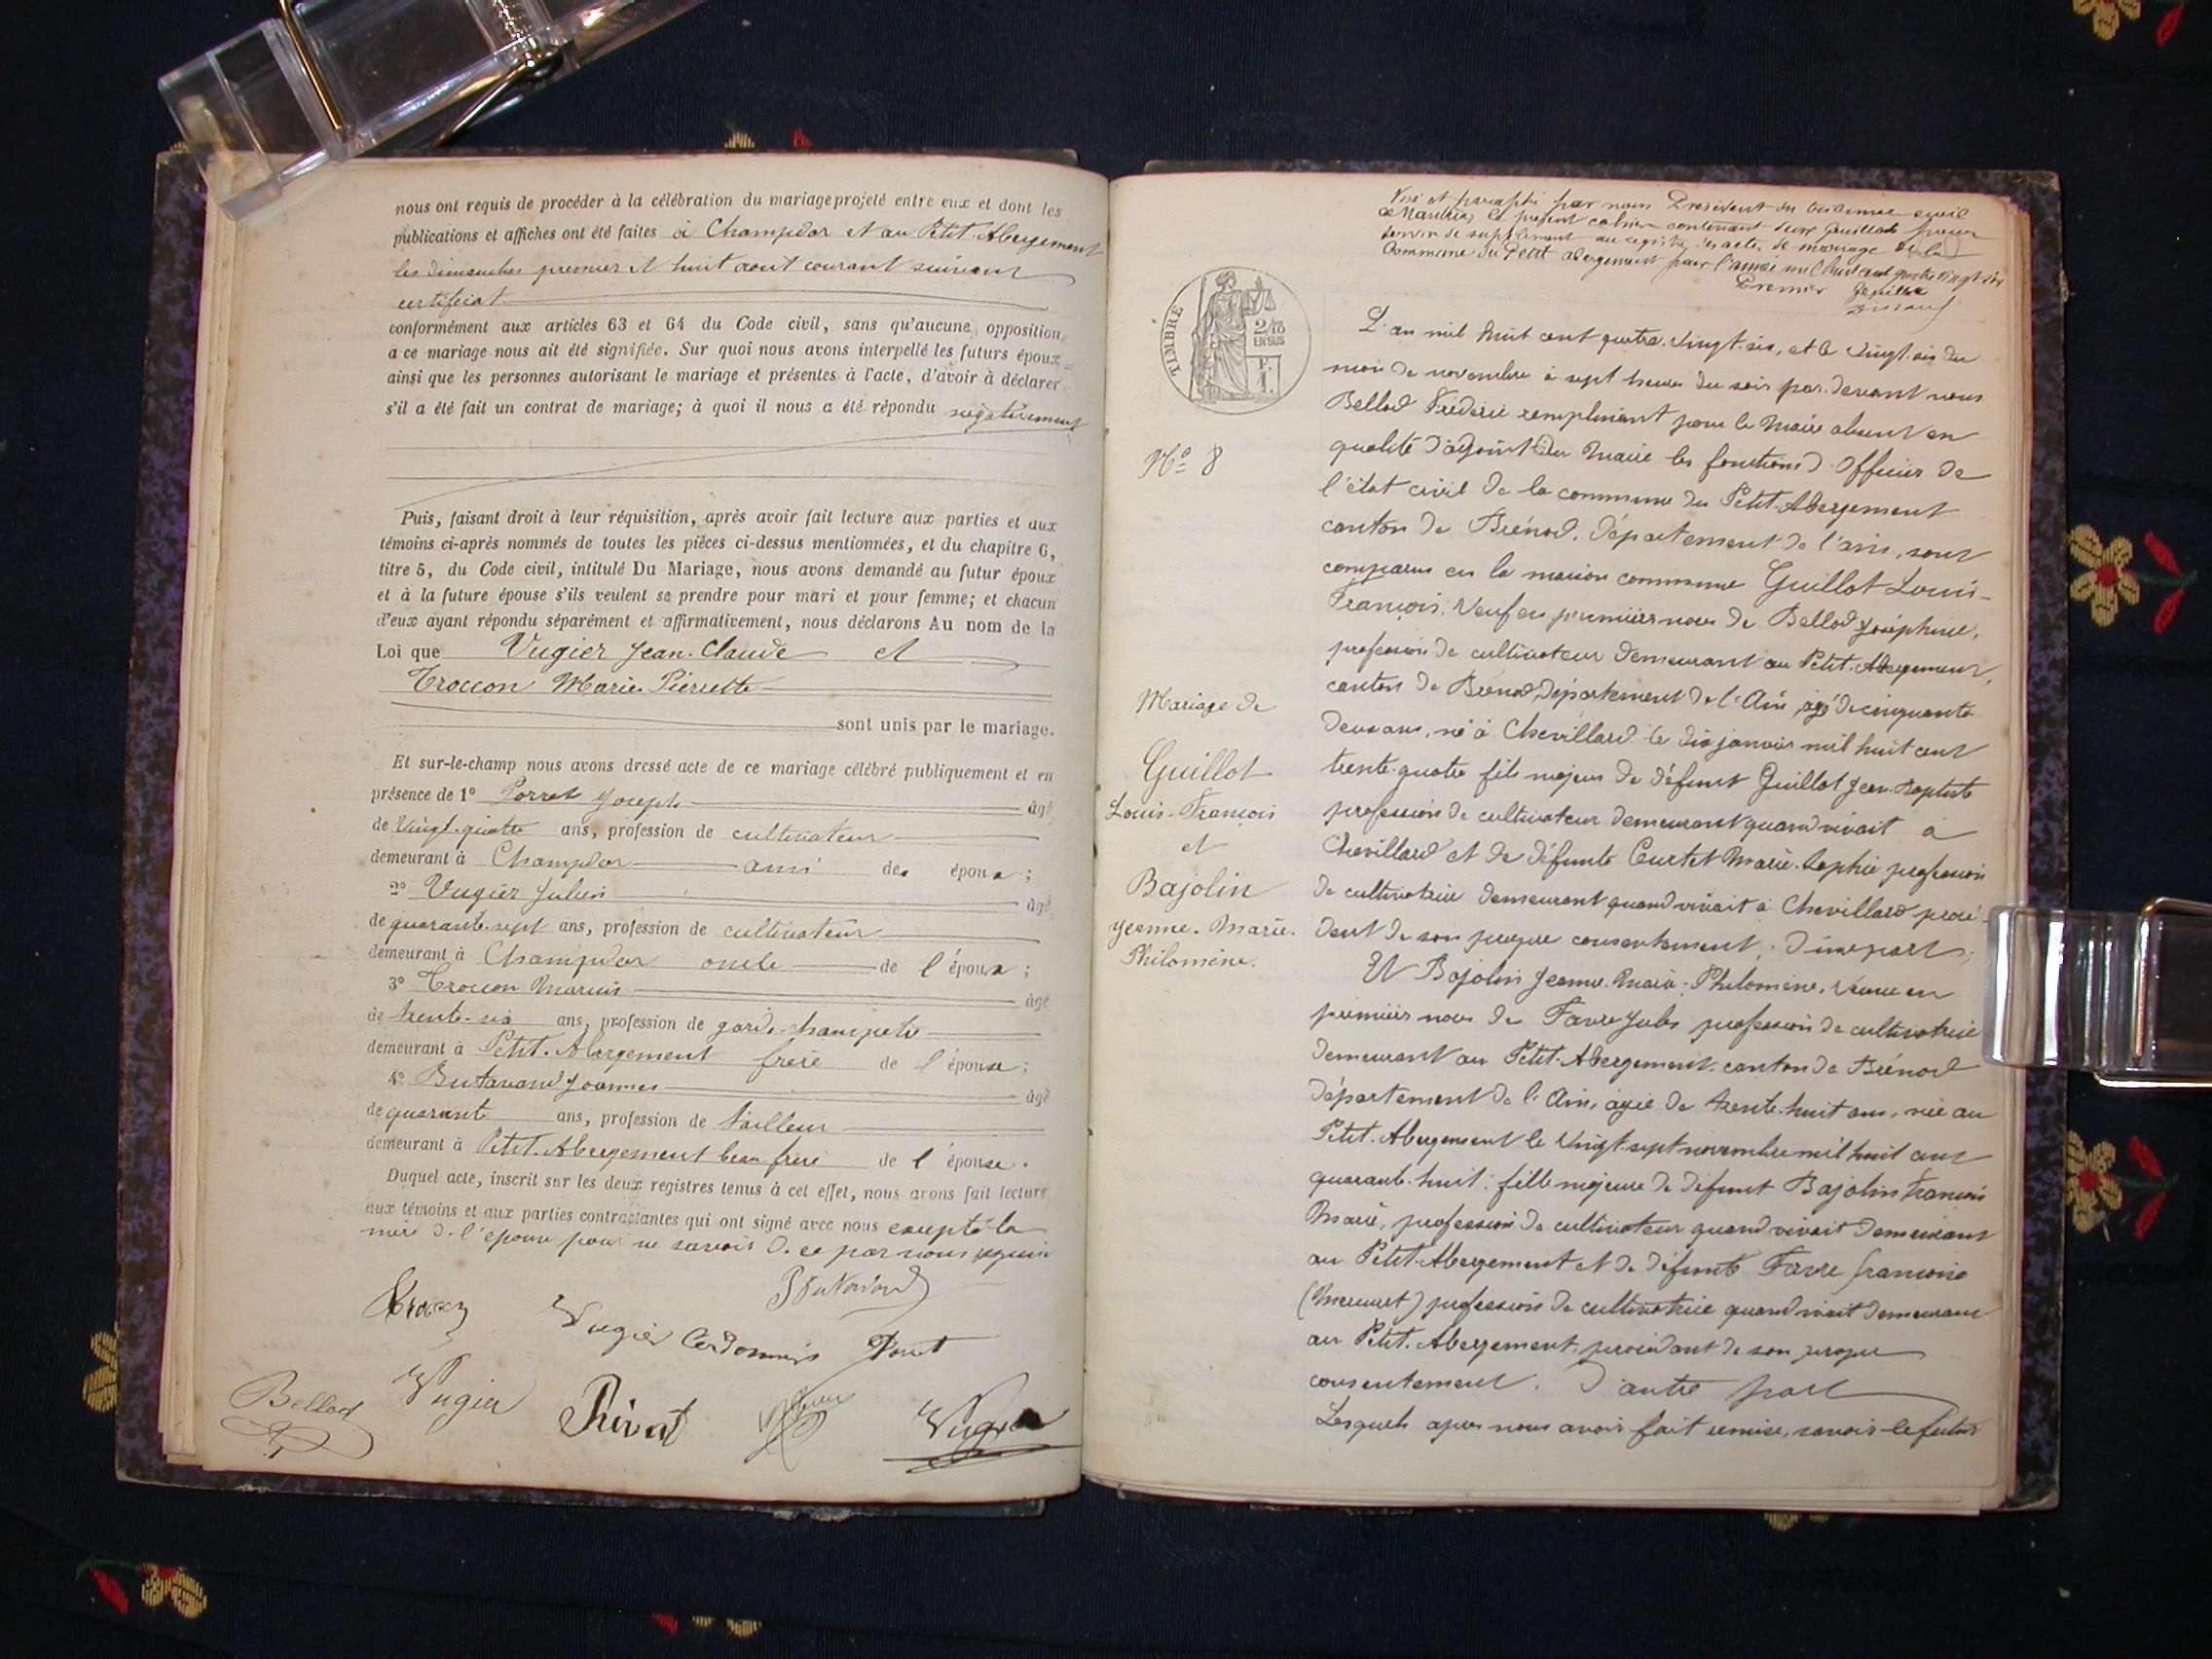 nous ont requis de procéder à la célébration du mariage projeté entre eux et dont les
publications et affiches ont été faites à Champdor et au Petit-Abergement
les dimanches premier et huit aout courant suivant
certificat
conformément aux articles 63 et 64 du Code civil, sans qu'aucune opposition
à ce mariage nous ait été signifiée. Sur quoi nous avons interpellé les futurs époux
ainsi que les personnes autorisant le mariage et présentes à l'acte, d'avoir à déclarer
s'il a été fait un contrat de mariage; à quoi il nous a été répondu négativement
Puis, faisant droit à leur réquisition, après avoir fait lecture aux parties et aux
témoins ci-après nommés de toutes les pièces ci-dessus mentionnées, et du chapitre 6,
titre 5, du Code civil, intitulé Du Mariage, nous avons demandé au futur époux
et à la future épouse s'ils veulent se prendre pour mari et pour femme; et chacun
d'eux ayant répondu séparément et affirmativement, nous déclarons Au nom de la
Loi que Vugier Jean-Claude et
Troccon Marie-Pierrette
sont unis par le mariage.
Et sur-le-champ nous avons dressé acte de ce mariage célébré publiquement et en
présence de 1° Porret Joseph âgé
de Vingt-quatre ans, profession de cultivateur
demeurant à Champdor ami des époux;
2° Vugier Julien âgé
de quarante-sept ans, profession de cultivateur
demeurant à Champdor oncle de l'époux;
3° Troccon Marius âgé
de trente-six ans, profession de garde-champetre
demeurant à Petit-Abergement frère de l'épouse;
4° Butavand Joannes âgé
de quarante ans, profession de tailleur
demeurant à Petit-Abergement beau frère de l'épouse.
Duquel acte, inscrit sur les deux registres tenus à cet effet, nous avons fait lecture
aux témoins et aux parties contractantes qui ont signé avec nous excepté la
mère de l'épouse pour ne savoir de ce par nous requise
Vugier Porret
Bellod Vugier Privat Vugier
Visé et paraphé par nous Président du tribunal civil
de Nantua le présent cahier contenant deux feuillets pour
servir de supplément au registre des actes de mariage de la
Commune du Petit abergement pour l'année mil huit cent quatre vingt six
Premier feuillet
TIMBRE
2/10
EN SUS
N° 8
L'an mil huit cent quatre-vingt-six, et le vingt-six du
mois de novembre à sept heures du soir par-devant nous
Bellod Frédéric remplissant pour le Maire absent en
qualité d'adjoint du Maire les fonctions d'officier de
l'état civil de la commune du Petit-Abergement
canton de Brénod, département de l'ain, sont
comparus en la maison commune Guillot Louis-
François, Veuf en premières noces de Bellod Joséphine,
profession de cultivateur demeurant au Petit-Abergement,
canton de Brénod, département de l'Ain, agé de cinquante
deux ans, né à Chevillard le dix janvier mil huit cent
trente-quatre fils majeur de défunt Guillot Jean-Baptiste
profession de cultivateur demeurant quand vivait à
Chevillard et de défunte Curtet Marie-Sophie profession
de cultivatrice demeurant quand vivait à Chevillard procé-
dant de son propre consentement; d'une part;
Et Bajolin Jeanne-Marie-Philomène, Veuve en
premières noces de Favre Jules profession de cultivatrice
demeurant au Petit-Abergement, canton de Brénod
département de l'Ain, agée de trente-huit ans, née au
Petit-Abergement le vingt-sept novembre mil huit cent
quarante-huit: fille majeure de défunt Bajolin François
Marie, profession de cultivateur quand vivait demeurant
au Petit-Abergement et de défunte Favre françoise
profession de cultivatrice quand vivait demeurant
au Petit-Abergement, procédant de son propre
consentement. D'autre part
Lesquels après nous avoir fait remise, savoir le futur
Mariage de
Guillot
Louis-François
et
Bajolin
Jeanne-Marie-
Philomène.